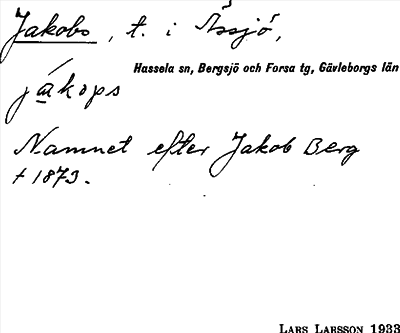 Jakobs, t. i Åssjö,
Hassela sn, Bergsjö och Forsa tg, Gävleborgs län
jákops
Namnet efter Jakob Berg
† 1873.
LARS LARSSON 1933